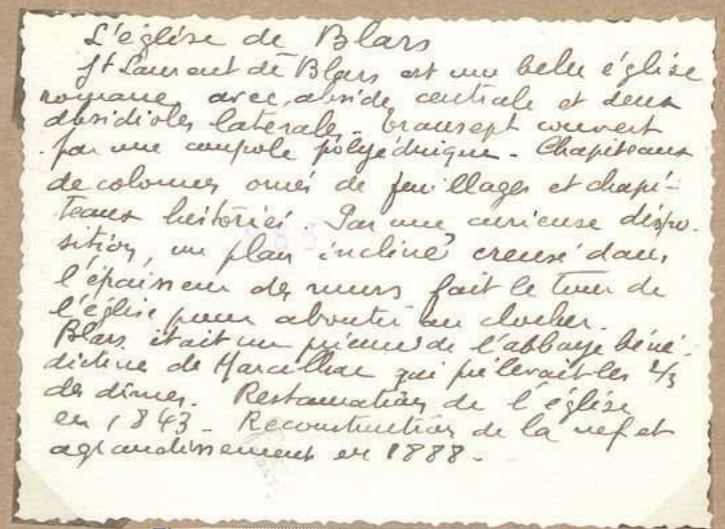 L'église de Blars
St Laurent de Blars est une belle église
romane, avec abside centrale et deux
absidioles latérales - transept couvert
par une coupole polyédrique - Chapiteaux
de colonnes ornés de feuillages et chapi-
teaux historiés. Par une curieuse dispo-
sition, un plan incliné creusé dans
l'épaisseur des murs fait le tour de
l'église pour aboutir au clocher.
Blars était un prieuré de l'abbaye béné-
dictine de Marcilhac qui prélevait les 2/3
des dîmes. Restauration de l'église
en 1843 - Reconstruction de la nef et
agrandissement en 1888 -